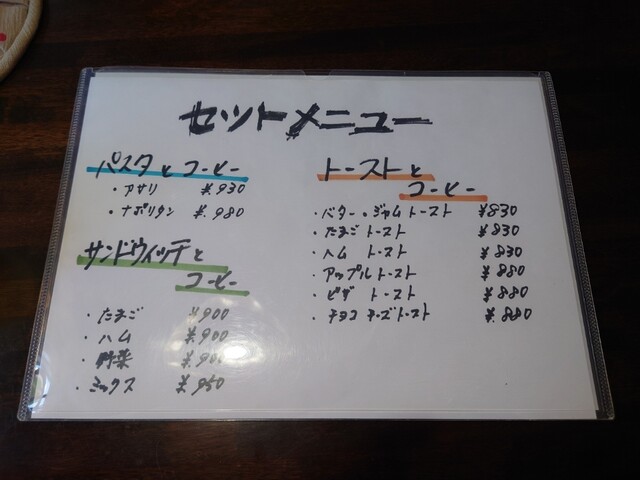 セットメニュー
パスタとコーヒー
・アサリ ¥930
・ナポリタン ¥.980
サンドウィッチと
コーヒー
・たまご ¥900
・ハム ¥.900
・野菜 ¥.900
・ミックス ¥.950
トーストと
コーヒー
・バター・ジャムトースト ¥830
・たまごトースト ¥830
・ハム トースト ¥830
・アップルトースト ¥880
・ピザ トースト ¥880
・チョコチーズトースト ¥.880